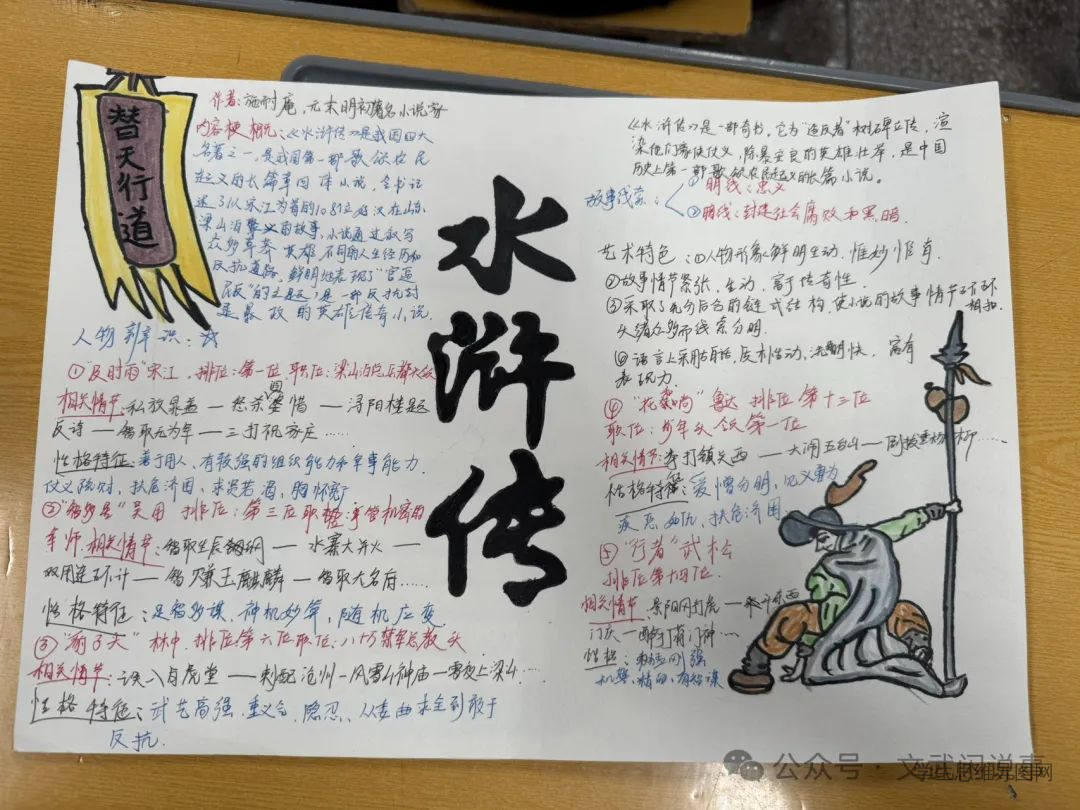 替天行道
作者:施耐庵,元末明初著名小说家
内容梗概:《水浒传》是我国四大
名著之一,是我国第一部歌颂农民
起义的长篇章回体小说,全书记
述了以宋江为首的108位好汉在山东
梁山泊聚义的故事,小说通过叙写
众多草莽英雄不同的人生经历和
反抗道路,鲜明地表现了"官逼
民反"的主题,是一部反抗封
建暴政的英雄传奇小说。
人物辨识:
①"及时雨"宋江 排位:第一位 职位:梁山泊总兵都大
相关情节:私放晁盖—怒杀阎婆惜—浔阳楼题
反诗—智取无为军—三打祝家庄……
性格特征:善于用人,有较强的组织能力和军事能力.
仗义疏财,扶危济困,求贤若渴,胸怀宽
②"智多星"吴用 排位:第三位 职位:掌管机密的
军师.相关情节:智取生辰纲—水寨大并火—
双用连环计—智赚玉麒麟—智取大名府……
性格特征:足智多谋.神机妙算,随机应变
③"豹子头"林冲.排位:第六位 职位:八十万禁军总教头
相关情节:误入白虎堂—刺配沧州—风雪山神庙—雪夜上梁山……
性格特征:武艺高强.重义气.隐忍、从委曲求全到敢于
反抗.
水浒传
《水浒传》是一部奇书,它为"造反者"树碑立传,渲
染他们豪侠仗义,除暴安良的英雄壮举,是中国
历史上第一部歌颂农民起义的长篇小说。
故事线索:
①明线:忠义
②暗线:封建社会腐败和黑暗.
艺术特色:①人物形象鲜明生动,惟妙惟肖.
②故事情节紧张,生动,富于传奇性.
③采取了先分后合的链式结构,使小说的故事情节环环
相扣
头绪众多而线索分明.
④语言上采用古白话,质朴生动,洗练明快,富有
表现力.
④"花和尚"鲁达 排位 第十三位
职位:步军头领第一位
相关情节:拳打镇关西—大闹五台山—倒拔垂杨柳……
性格特征:爱憎分明,见义勇为
疾恶如仇,扶危济困.
⑤"行者"武松
排位第十四位.
相关情节:景阳冈打虎—
门庆—醉打蒋门神…
性格:
机警,精明,有智谋
公众号·文武闲说事